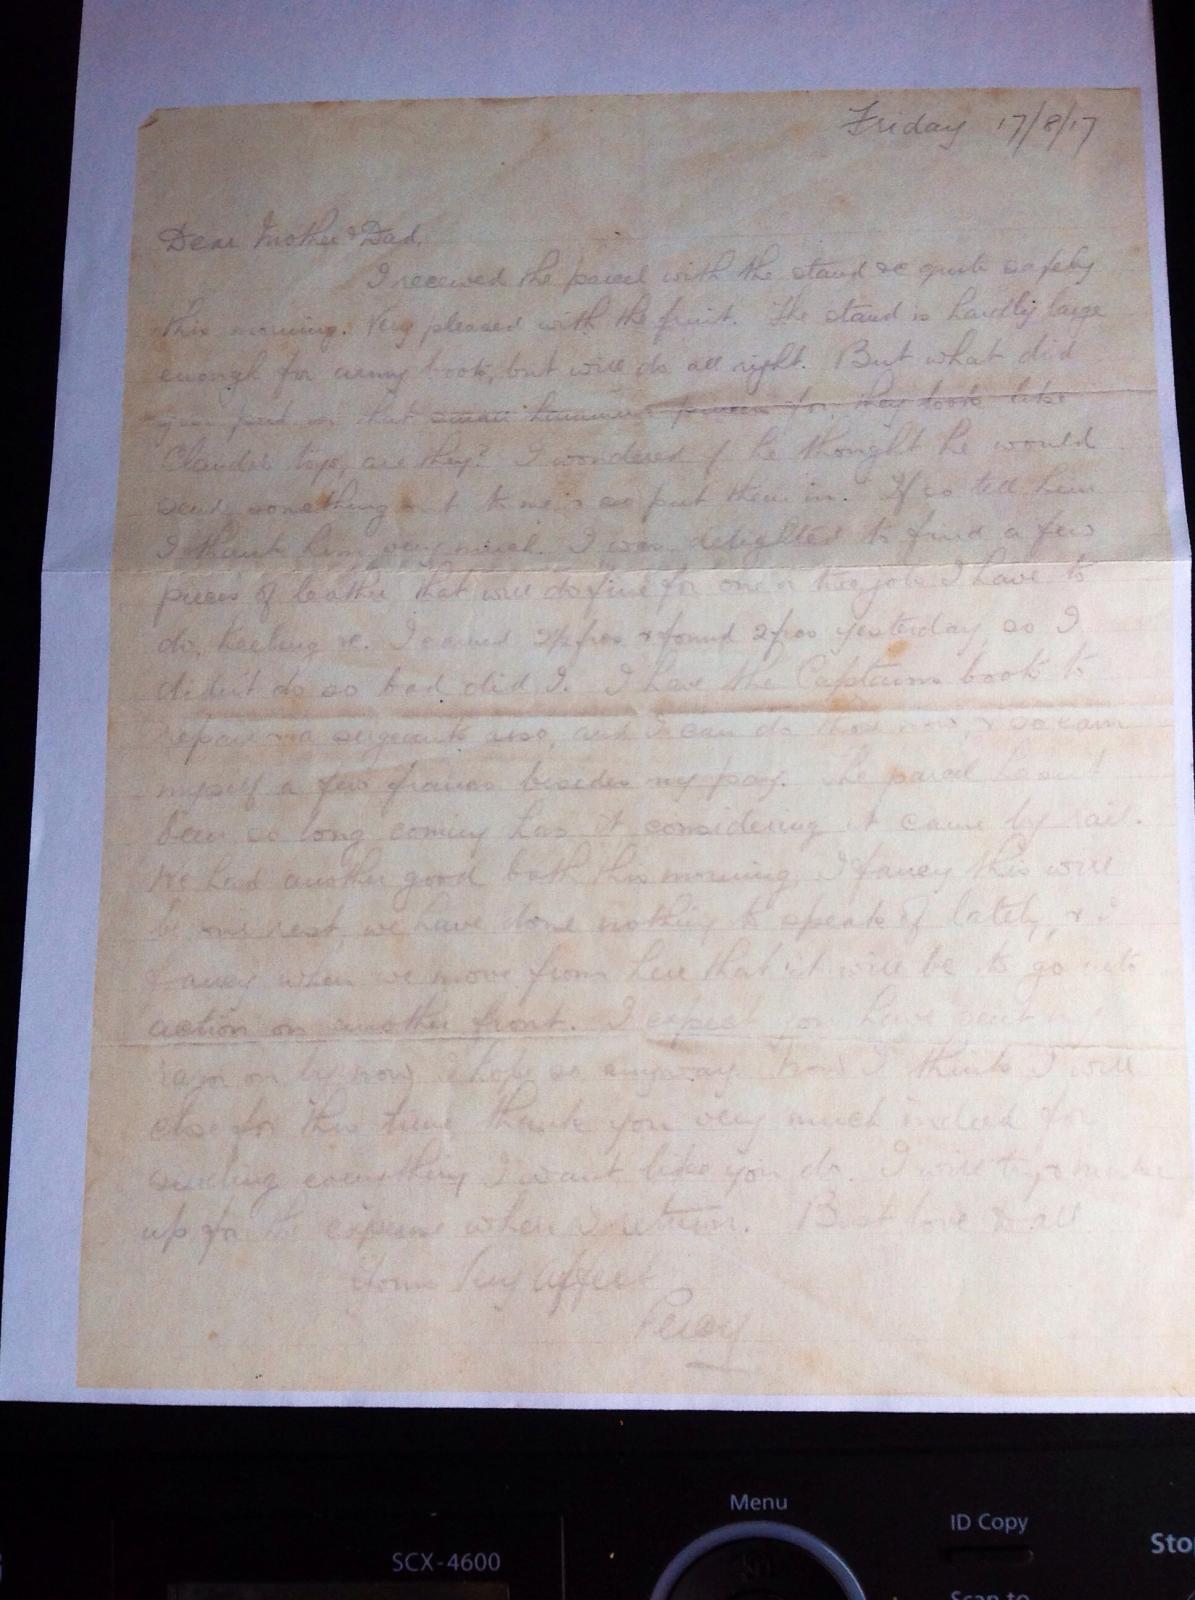 Friday 17/8/17
Dear Mother & Dad,
I received the parcel with the stand &c quite safely
this morning. Very pleased with the fruit. The stand is hardly large
enough for army boots, but will do all right. But what did
you put in that small hammer for, they look like
Claude's toys, are they? I wondered if he thought he would
send something out to me & so put them in. If so tell him
I thank him very much. I was delighted to find a few
pieces of leather that will do fine for one or two jobs I have to
do, heeling &c. I earned frcs & found 2 frcs yesterday, so I
didn't do so bad did I. I have the Captains boots to
repair & a sergeants also, and I can do them now, & so earn
myself a few francs besides my pay. The parcel hasn't
been so long coming has it considering it came by rail.
We had another good bath this morning, I fancy this will
be our rest, we have done nothing to speak of lately, & I
fancy when we move from here that it will be to go into
action on another front. I expect you have sent my
razor on by now, I hope so anyway. Now I think I will
close for this time, thank you very much indeed for
sending everything I want like you do. I will try & make
up for the expense when I return. Best love to all
Your Affect
Percy
Menu
ID Copy
SCX-4600
Sto
Scan to